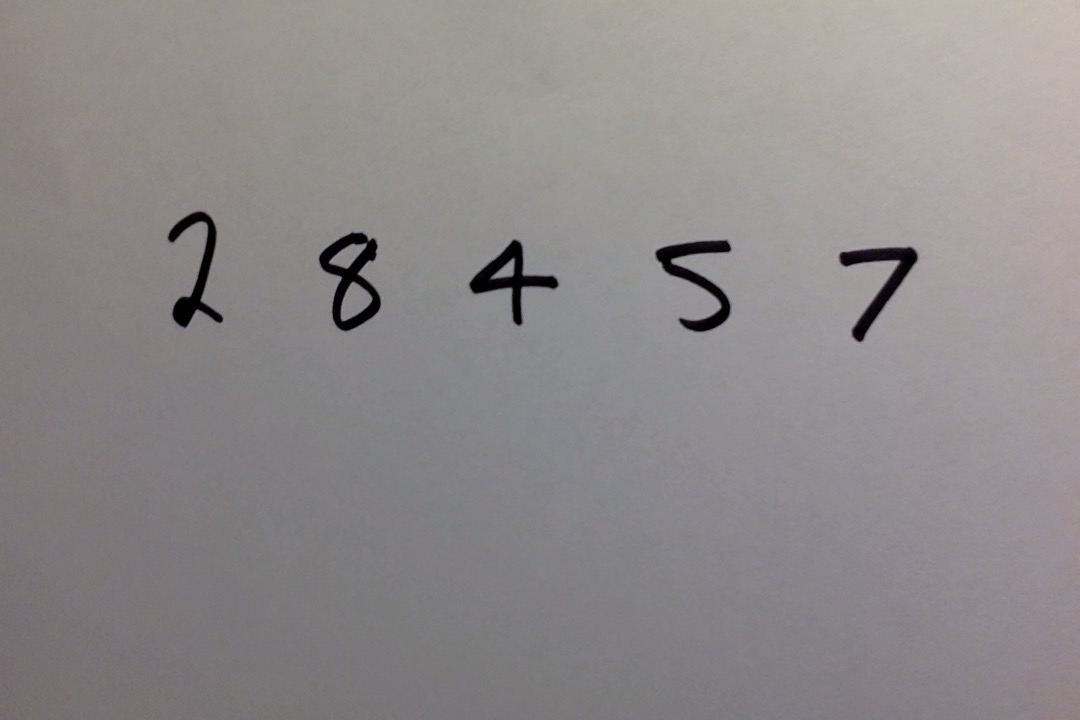 2 8 4 5 7